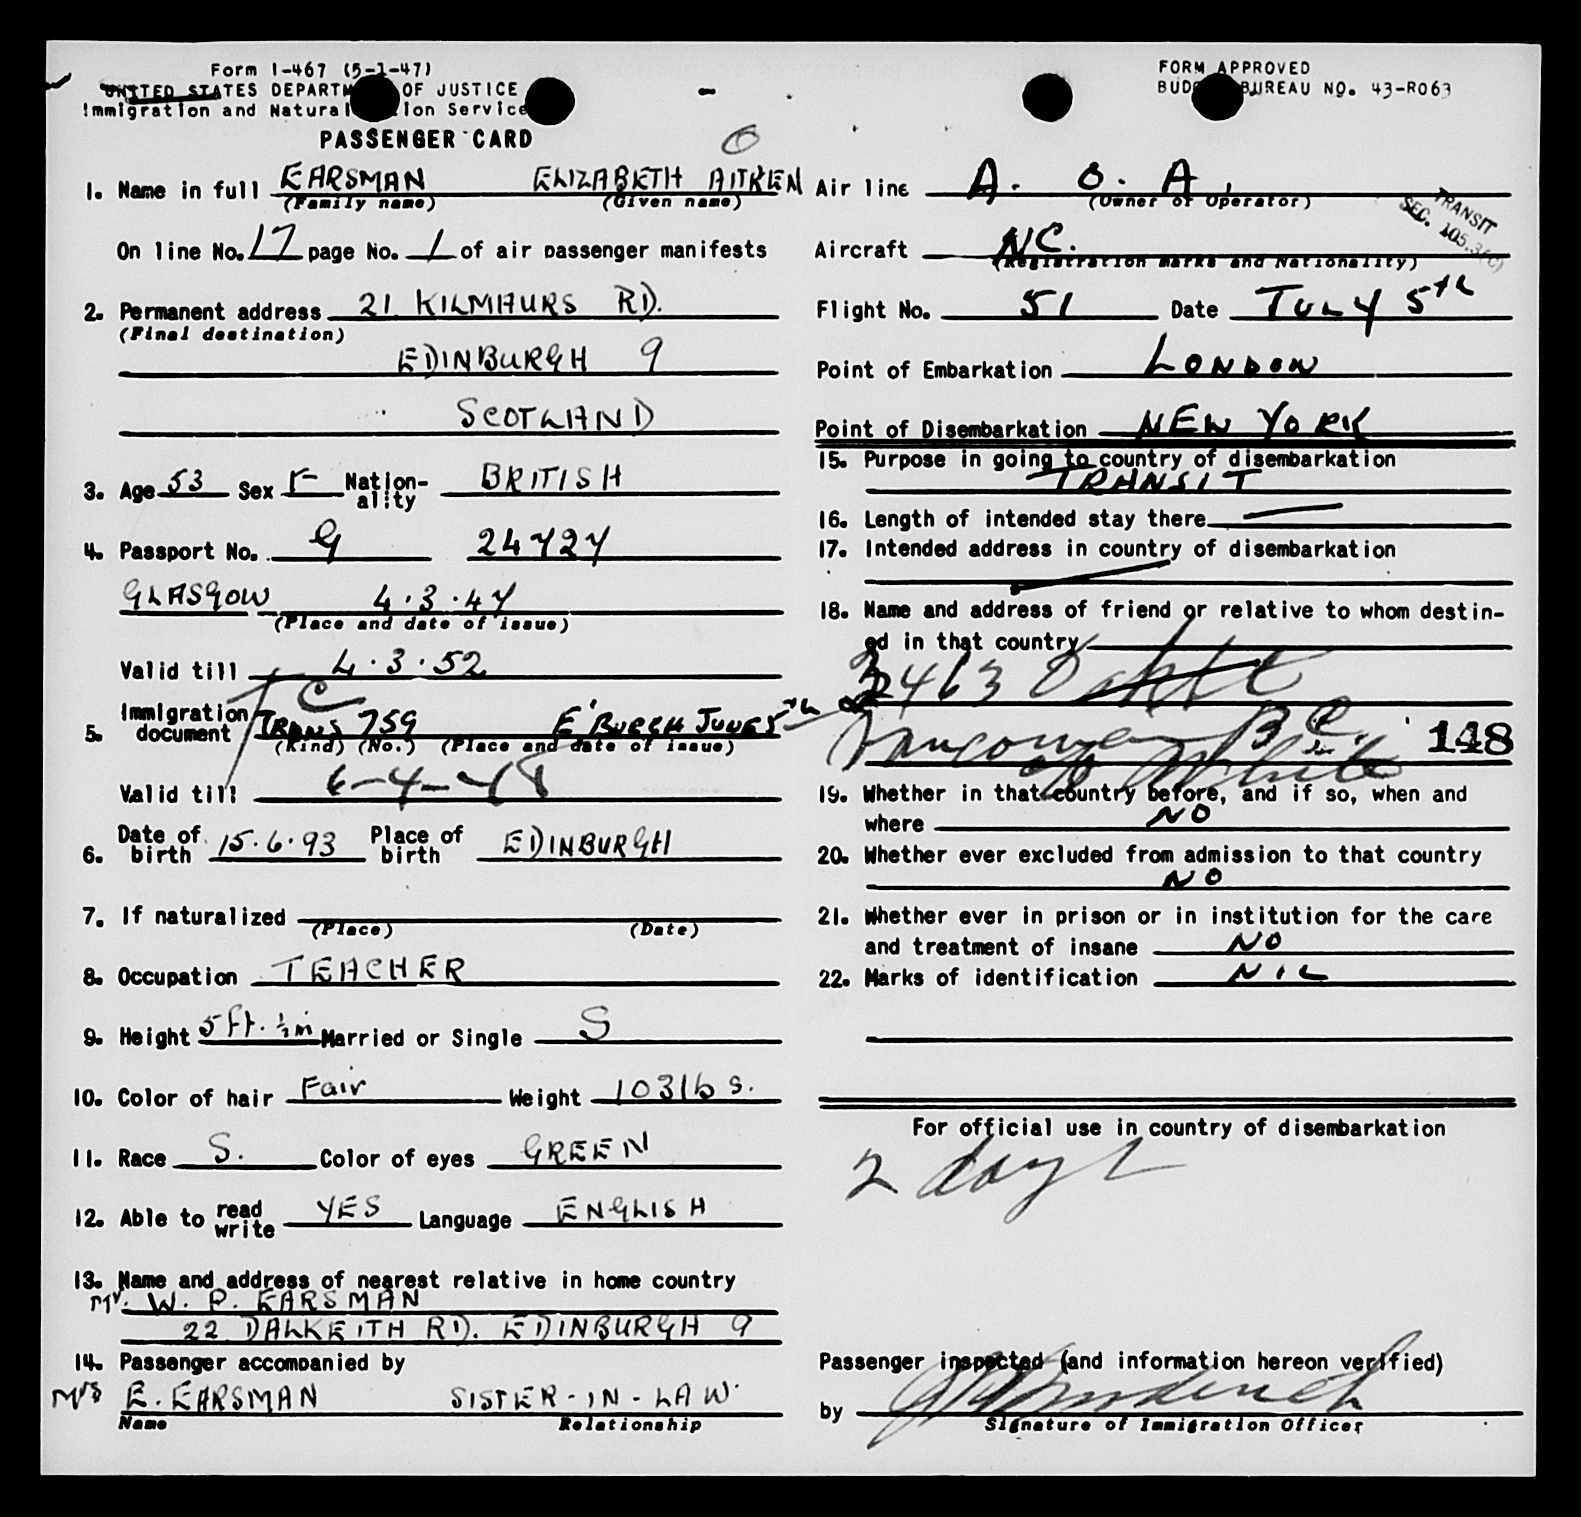 Form I-467 (5-1-47)
UNITED STATES DEPARTM OF JUSTICE
Immigration and Natural ion Service
PASSENGER CARD
FORM APPROVED
BUD BUREAU NO. 43-R063
1. Name in full EARSMAN ELIZABETH AITKEN
(Family name) (Given name)
On line No. 17 page No. 1 of air passenger manifests
2. Permanent address 21 KILMAURS RD.
(Final destination)
EDINBURGH 9
SCOTLAND
3. Age 53 Sex F Nation-ality BRITISH
4. Passport No. G 24727
GLASGOW 4.3.47
(Place and date of issue)
Valid till 4.3.52
5. Immigration document TRANS 759 E'BURGH JUNE 5th
(Kind) (No.) (Place and date of issue)
Valid till 6-4-48
6. Date of birth 15.6.93 Place of birth EDINBURGH
7. If naturalized
(Place) (Date)
8. Occupation TEACHER
9. Height 5 ft. ½ in Married or Single S
10. Color of hair Fair Weight 103 lbs.
11. Race S. Color of eyes GREEN
12. Able to read write YES Language ENGLISH
13. Name and address of nearest relative in home country
Mr. W. P. EARSMAN
22 DALKEITH RD. EDINBURGH 9
14. Passenger accompanied by
Mrs E. EARSMAN SISTER-IN-LAW
Name Relationship
Air line A. O. A.
(Owner or Operator)
TRANSIT
SEC. 105.3(C)
Aircraft NC.
(Registration marks and Nationality)
Flight No. 51 Date JULY 5th
Point of Embarkation LONDON
Point of Disembarkation NEW YORK
15. Purpose in going to country of disembarkation
TRANSIT
16. Length of intended stay there —
17. Intended address in country of disembarkation
18. Name and address of friend or relative to whom destin-
ed in that country
3463
Vancouver B.C. 148
White
19. Whether in that country before, and if so, when and
where NO
20. Whether ever excluded from admission to that country
NO
21. Whether ever in prison or in institution for the care
and treatment of insane NO
22. Marks of identification NIL
For official use in country of disembarkation
2 days
Passenger inspected (and information hereon verified)
by
Signature of Immigration Officer